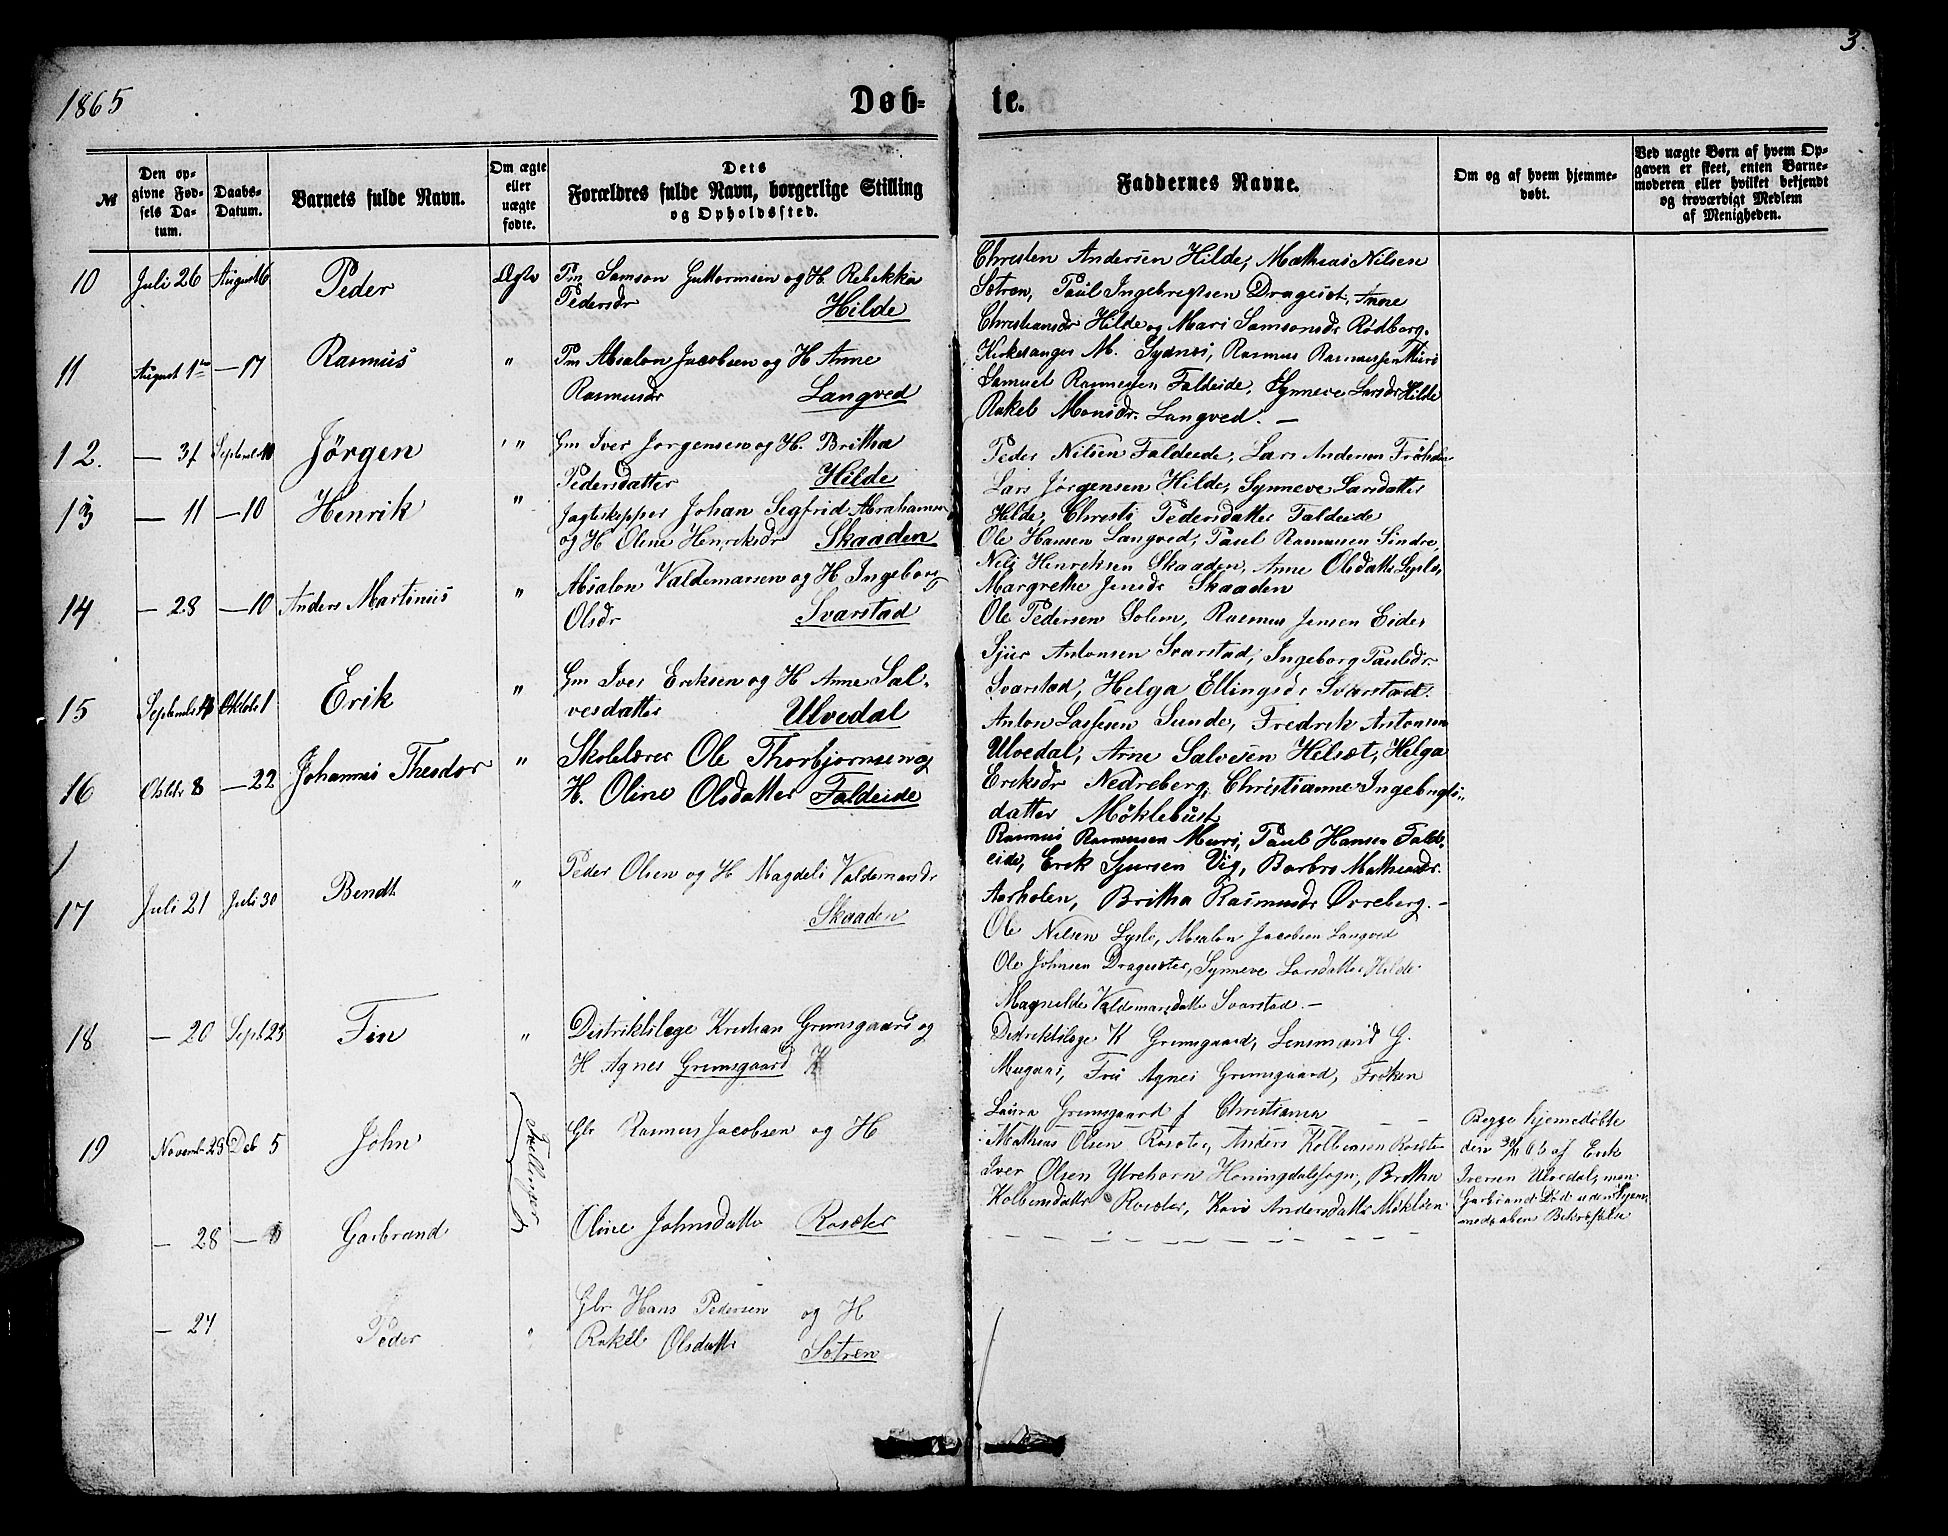 3.
1865
Døb-
te.
№
Den op-
givne Fød-
sels Da-
tum.
Daabs-
Datum.
Barnets fulde Navn.
Om ægte
eller
uægte
fødte.
Dets
Forældres fulde Navn, borgerlige Stilling
og Opholdssted.
Faddernes Navne.
Om og af hvem hjemme-
døbt.
Ved uægte Børn af hvem Op-
gaven er skeet, enten Barne-
moderen eller hvilket bekjendt
og troværdigt Medlem
af Menigheden.
10 Juli 26 August 6 Peder Ægte Pm Samson Guttormsen og H. Rebekka
Pedersdr Hilde
Christen Andersen Hilde, Mathias Nilsen
Sætren, Paul Ingebregtsen Dragesæt, Anne
Christiansdr Hilde og Mari Samsonsdr Rødberg.
11 August 1ste — 17 Rasmus " Pm Absalon Jacobsen og H Anne
Rasmusdr Langved
Kirkesanger M. Sydnes, Rasmus Rasmussen Muri
Samuel Rasmussen Faldeide, Synneve Larsdr Hilde
Rakel Monsdr. Langved. —
12. — 31 Septemb 10 Jørgen " Gm Iver Jørgensen og H. Britha
Pedersdatter Hilde
Peder Nilsen Faldeide, Lars Andersen
Lars Jørgensen Hilde, Synneve Larsdatter
Hilde, Christi Pedersdatter Faldeide
13 — 11 — 10 Henrik " Jagteskipper Johan Sigfrid Abrahamsen
og H Oline Henriksdr Skaaden
Ole Hansen Langved, Paul Rasmussen Sindre,
Nils Henriksen Skaaden, Anne Olsdatter
Margrethe Jensdr Skaaden
14 — 28 — 10 Anders Martinus " Absalon Valdemarsen og H Ingeborg
Olsdr Svarstad
Ole Pedersen Solem, Rasmus Jensen Eide,
Sjur Antonsen Svarstad, Ingeborg Paulsdr.
Svarstad, Helga Ellingsdr Svarstad.
15 Septemb Oktob 1 Erik " Gm Iver Eriksen og H Anne Sal-
vesdatter Ulvedal
Anton Lassesen Sunde, Fredrik Antonsen
Ulvedal, Arne Salvesen Hilsæt, Helga
Eriksdr Nedreberg, Christianne Ingebrigts-
datter Møklebust
16 Oktobr 8 — 22 Johannes Theodor " Skolelærer Ole Thorbjørnsen og
H. Oline Olsdatter Faldeide
Rasmus Rasmussen Muri, Paul Hansen Fald-
eide, Erik Sjursen Vig, Barbro Mathiasdr.
Aarholen, Britha Rasmusdr Øvreberg. —
17 Juli 21 Juli 30 Bendt " Peder Olsen og H Magdeli Valdemarsdr
Skaaden
Ole Nilsen Lyslo, Absalon Jacobsen Langved
Ole Johnsen Dragesæter, Synneve Larsdatter Hilde
Magnilde Valdemarsdatter Svarstad. —
18 — 20 Sept 23 Fin " Distriktslæge Kristian Grimsgaard og
H Agnes Grimsgaard
Distriktslæge K Grimsgaard, Lensmand G.
Mugaas, Fru Agnes Grimsgaard, Frøken
Laura Grimsgaard f Christiania
19 Novemb 23 Deb 5 John Tvillinger Gbr Rasmus Jacobsen og H
Mathias Olsen Rosæter, Anders Kolbensen Rosæter
Iver Olsen Ytrehorn Horningdalsogn, Britha
Kolbensdatter Rosæter, Kari Andersdatter
Begge hjemmedøbte
den 30/11 65 af Erik
Iversen Ulvedal, men
Garbrand død uden
— 28 — Garbrand Oline Johnsdatter Rosæter
— 27 Peder " Gbr Hans Pedersen og H
Rakel Olsdatter Sætren